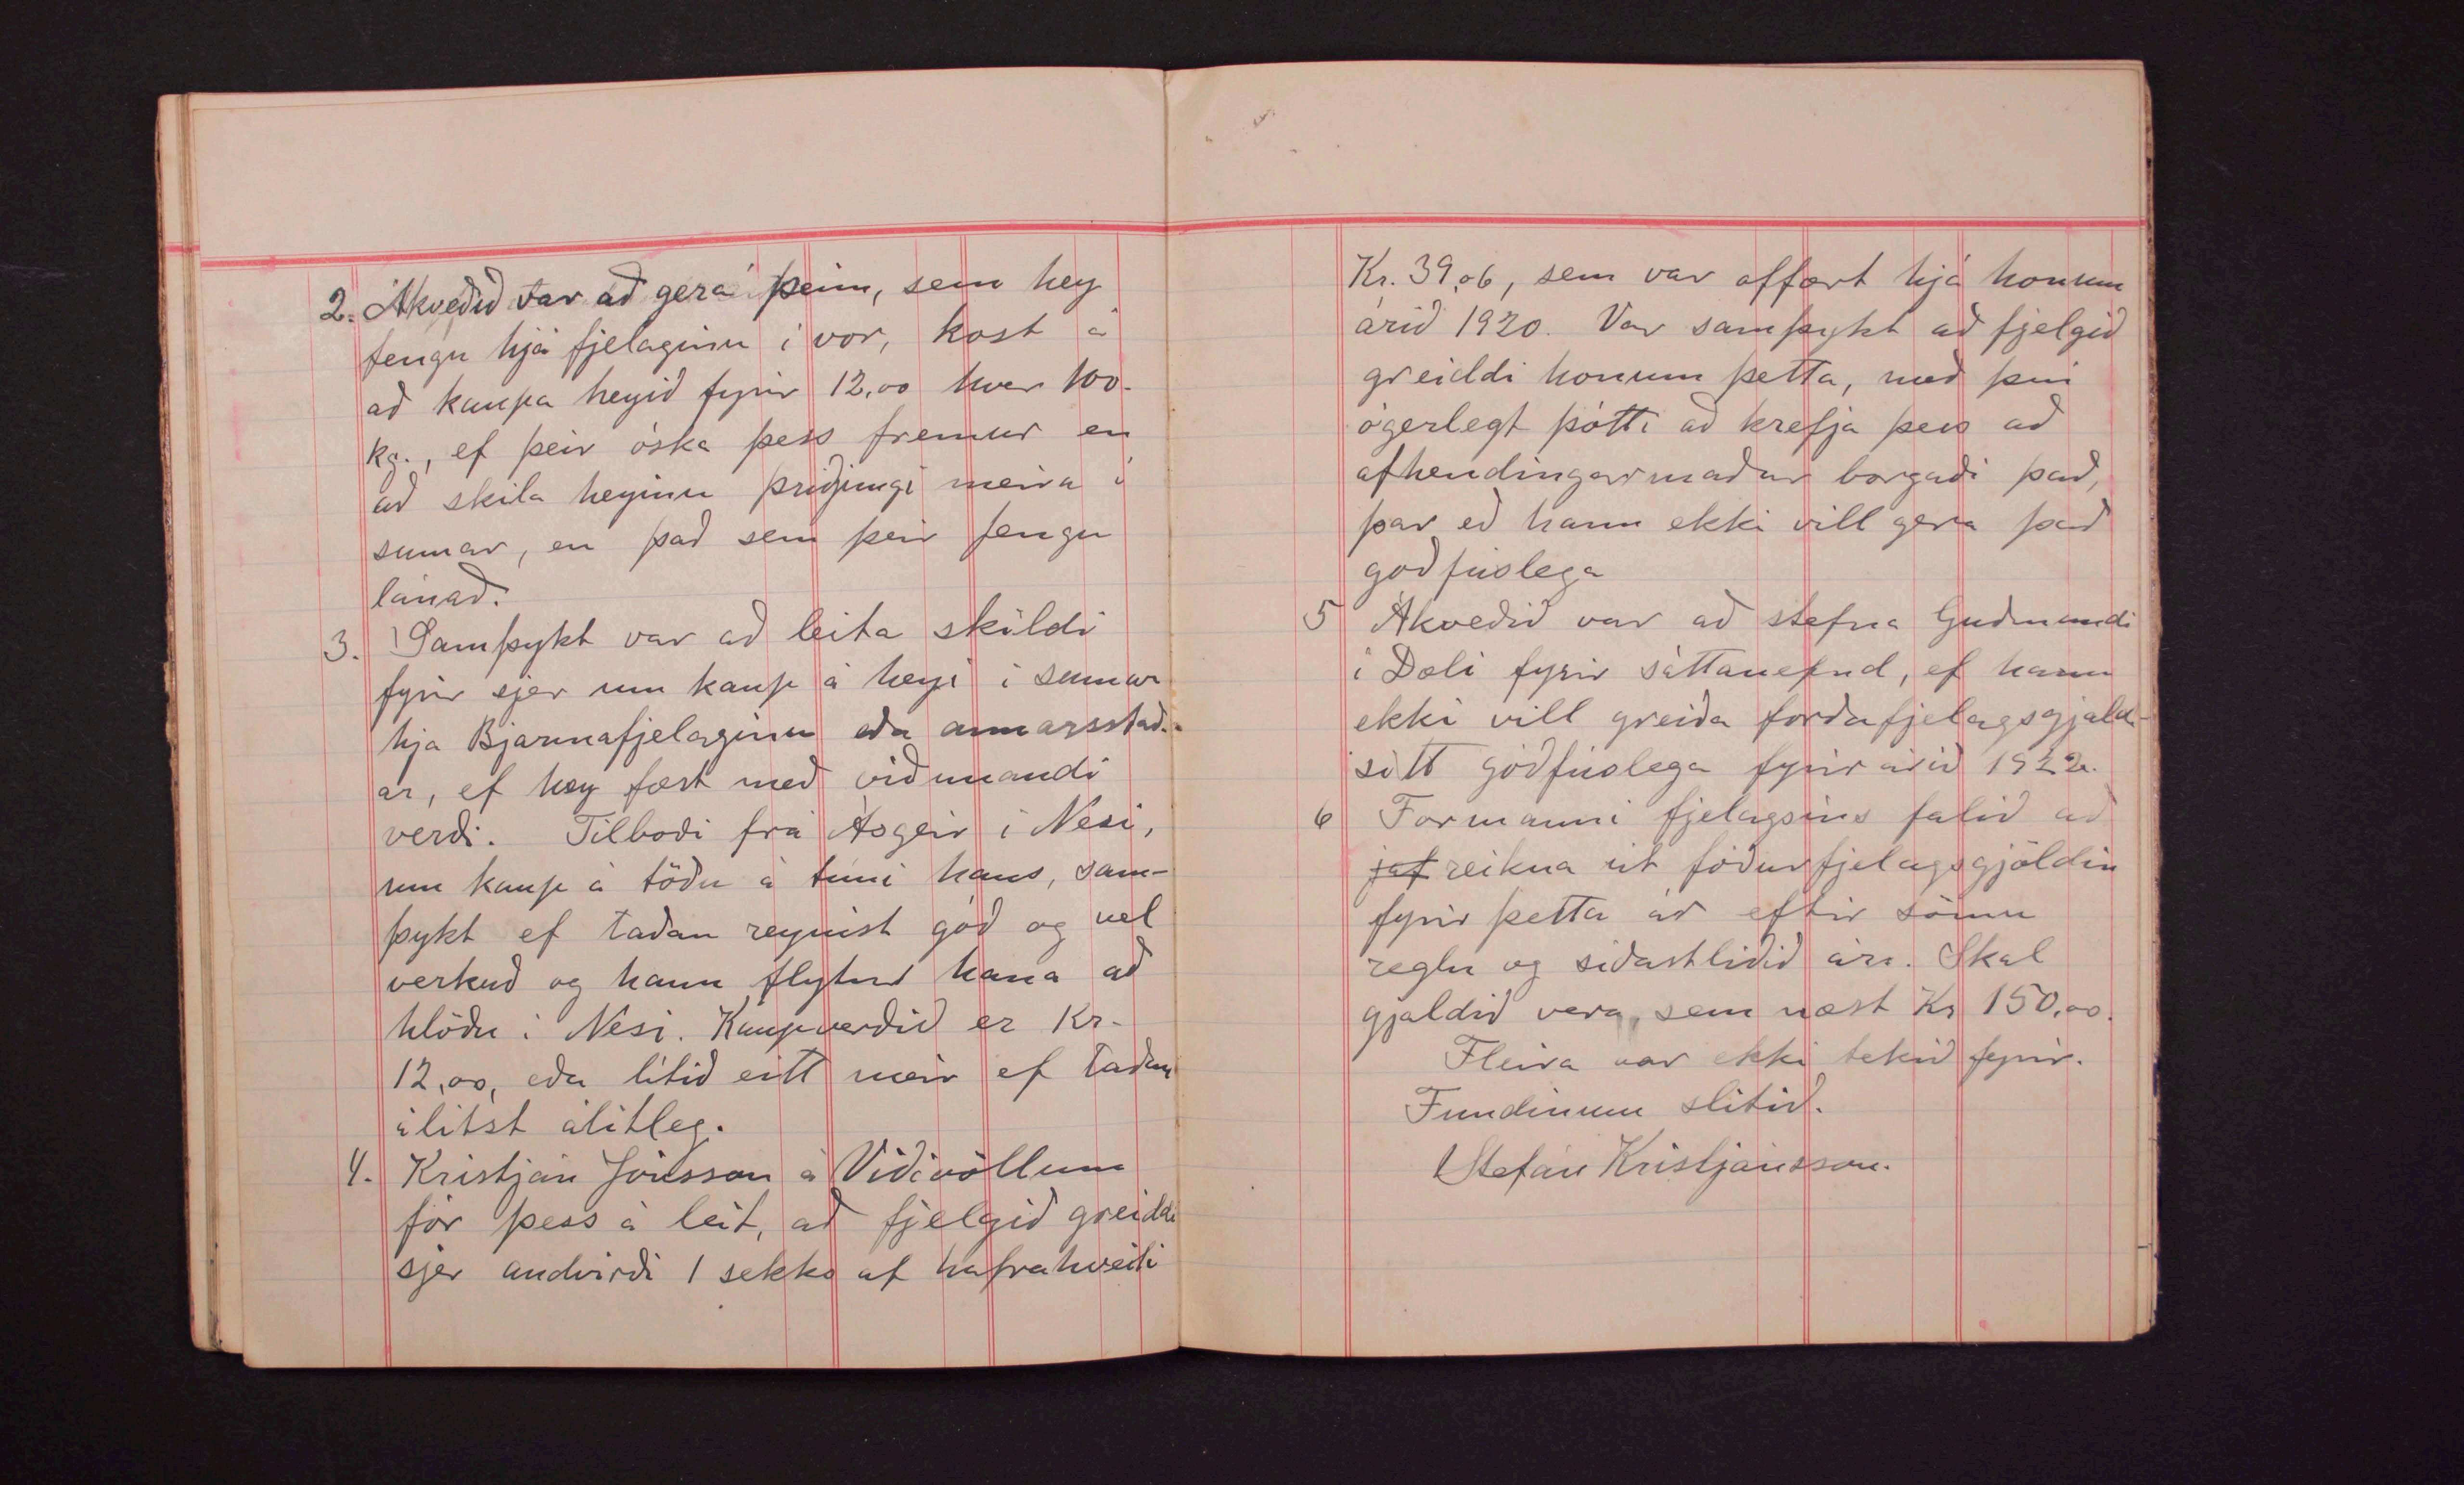 2. Ákveðið var að gera þeim, sem hey
fengu hjá fjelaginu í vor, kost á
að kaupa heyið fyrir 12,00 hver 100
kg., ef þeir óska þess fremur en
að skila heyinu þriðjungi meira í
sumar, en það sem þeir fengu
lánað.
3. Samþykt var að leita skildi
fyrir sjer um kaup á heyi í sumar
hjá Bjarmafjelaginu eða annarsstað-
ar, ef hey fæst með viðunandi
verði. Tilboði frá Ásgeir í Nesi,
um kaup á töðu á túni hans, sam-
þykt ef taðan reynist góð og vel
verkuð og hann flytur hana að
hlöðu í Nesi. Kaupverðið er Kr.
12,00, eða lítið eitt meir ef taðan
álítst álitleg.
4. Kristján Jónsson á Víðivöllum
fór þess á leit, að fjelgið greiddi
sjer andvirði 1 sekks af hafrahveiti
Kr. 39,06, sem var offært hjá honum
árið 1920. Var samþykt að fjelgið
greiddi honum þetta, með því
ógerlegt þótti að krefja þess að
afhendingarmaður borgaði það,
þar eð hann ekki vill gera það
góðfúslega
5 Ákveðið var að stefna Guðmundi
í Dæli fyrir sáttanefnd, ef hann
ekki vill greiða forðafjelagsgjald-
sitt góðfúslega fyrir árið 1922.
6 Formanni fjelagsins falið að
jaf reikna út fóðurfjelagsgjöldin
fyrir þetta ár eftir sömu
reglu og síðastliðið ár. Skal
gjaldið vera, sem næst Kr 150,00.
Fleira var ekki tekið fyrir.
Fundinum slitið.
Stefán Kristjánsson.